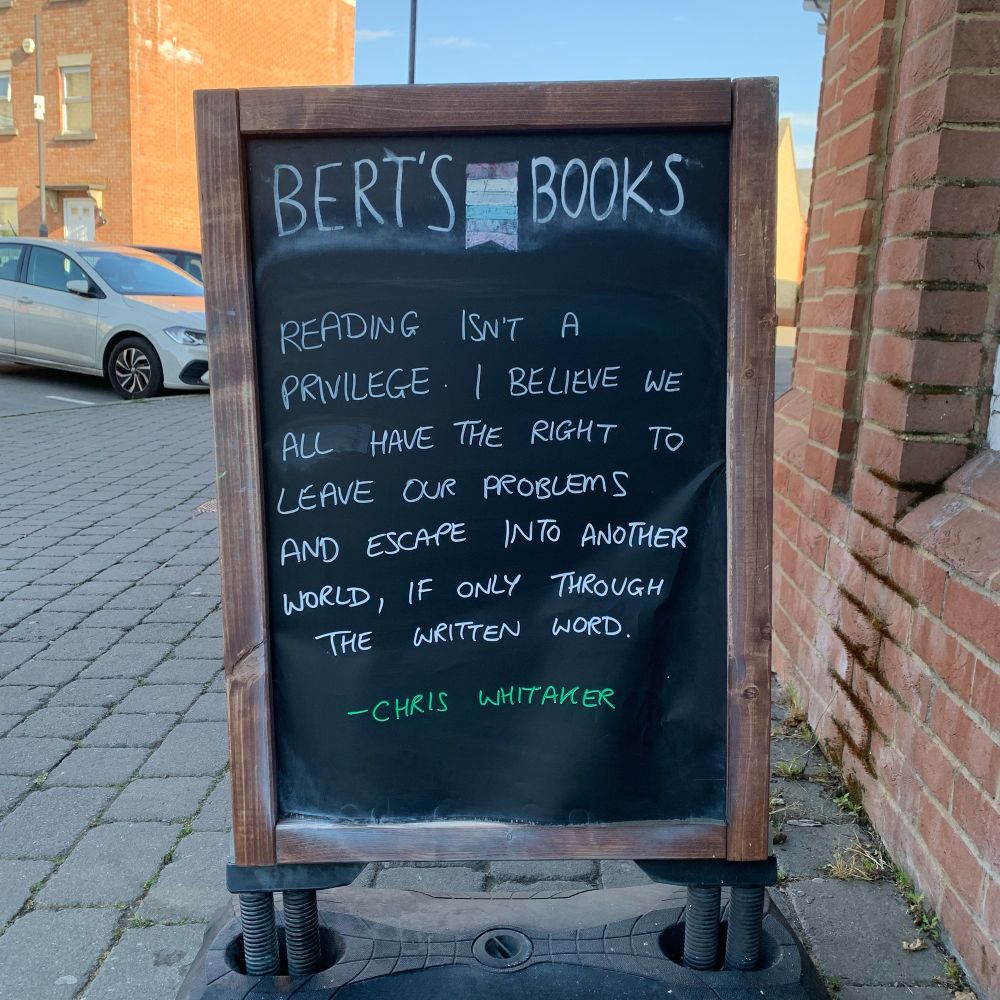 BERT'S BOOKS
READING ISN'T A
PRIVILEGE. I BELIEVE WE
ALL HAVE THE RIGHT TO
LEAVE OUR PROBLEMS
AND ESCAPE INTO ANOTHER
WORLD, IF ONLY THROUGH
THE WRITTEN WORD.
-CHRIS WHITAKER